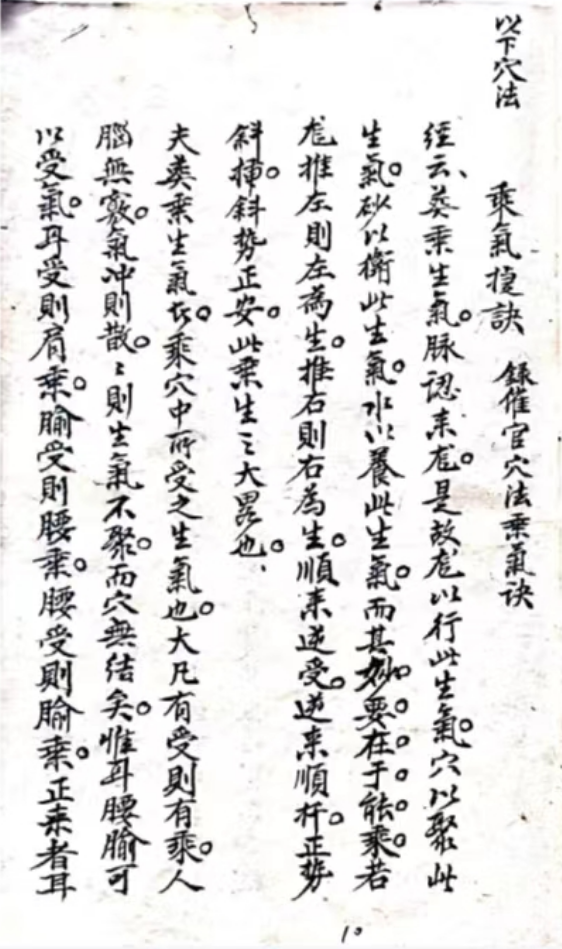 以下穴法
乘氣捷訣　錄催官穴法乘氣訣
經云、葬乘生氣。脉認來龙。是故龙以行此生氣。穴以聚此
生氣。砂以衛此生氣。水以養此生氣。而其妙。要。在。于。能。乘。若
龙推左則左為生。推右則右為生。順來逆受。逆來順杆。正势
斜揷。斜势正安。此乘生之大畧也。
夫葬乘生氣者。乘穴中所受之生氣也。大凡有受則有乘。人
腦無竅。氣冲則散。〻則生氣不聚。而穴無結矣。惟耳腰腧可
以受氣。耳受則肩乘。腧受則腰乘。腰受則腧乘。正來者耳
10